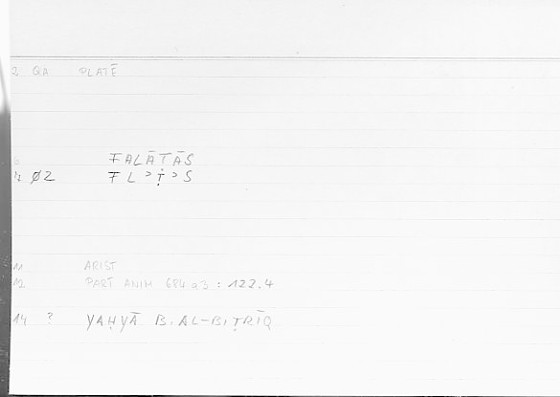 2 QA PLATĒ
8 FALĀṬĀS
12 Ø2 FLʾṬʾS
11 ARIST
12 PART ANIM 684a3 : 122.4
14 ? YAḤYĀ B. AL-BIṬRĪQ